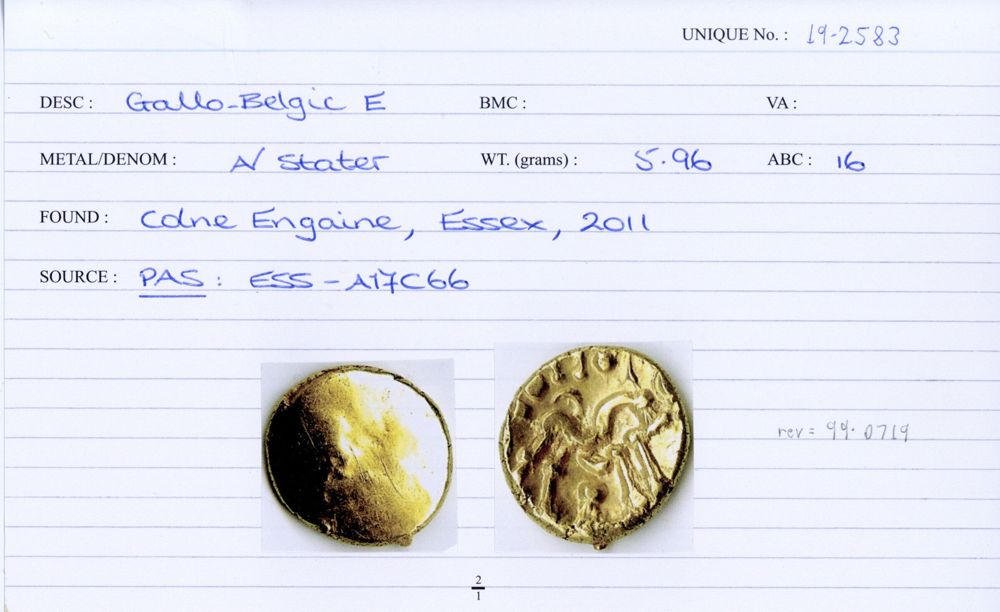 UNIQUE No. : 19-2583
DESC : Gallo-Belgic E BMC : VA :
METAL/DENOM : N Stater WT. (grams) : 5.96 ABC : 16
FOUND : Colne Engaine, Essex, 2011
SOURCE : PAS : ESS-A17C66
rev = 99.0719
2
1